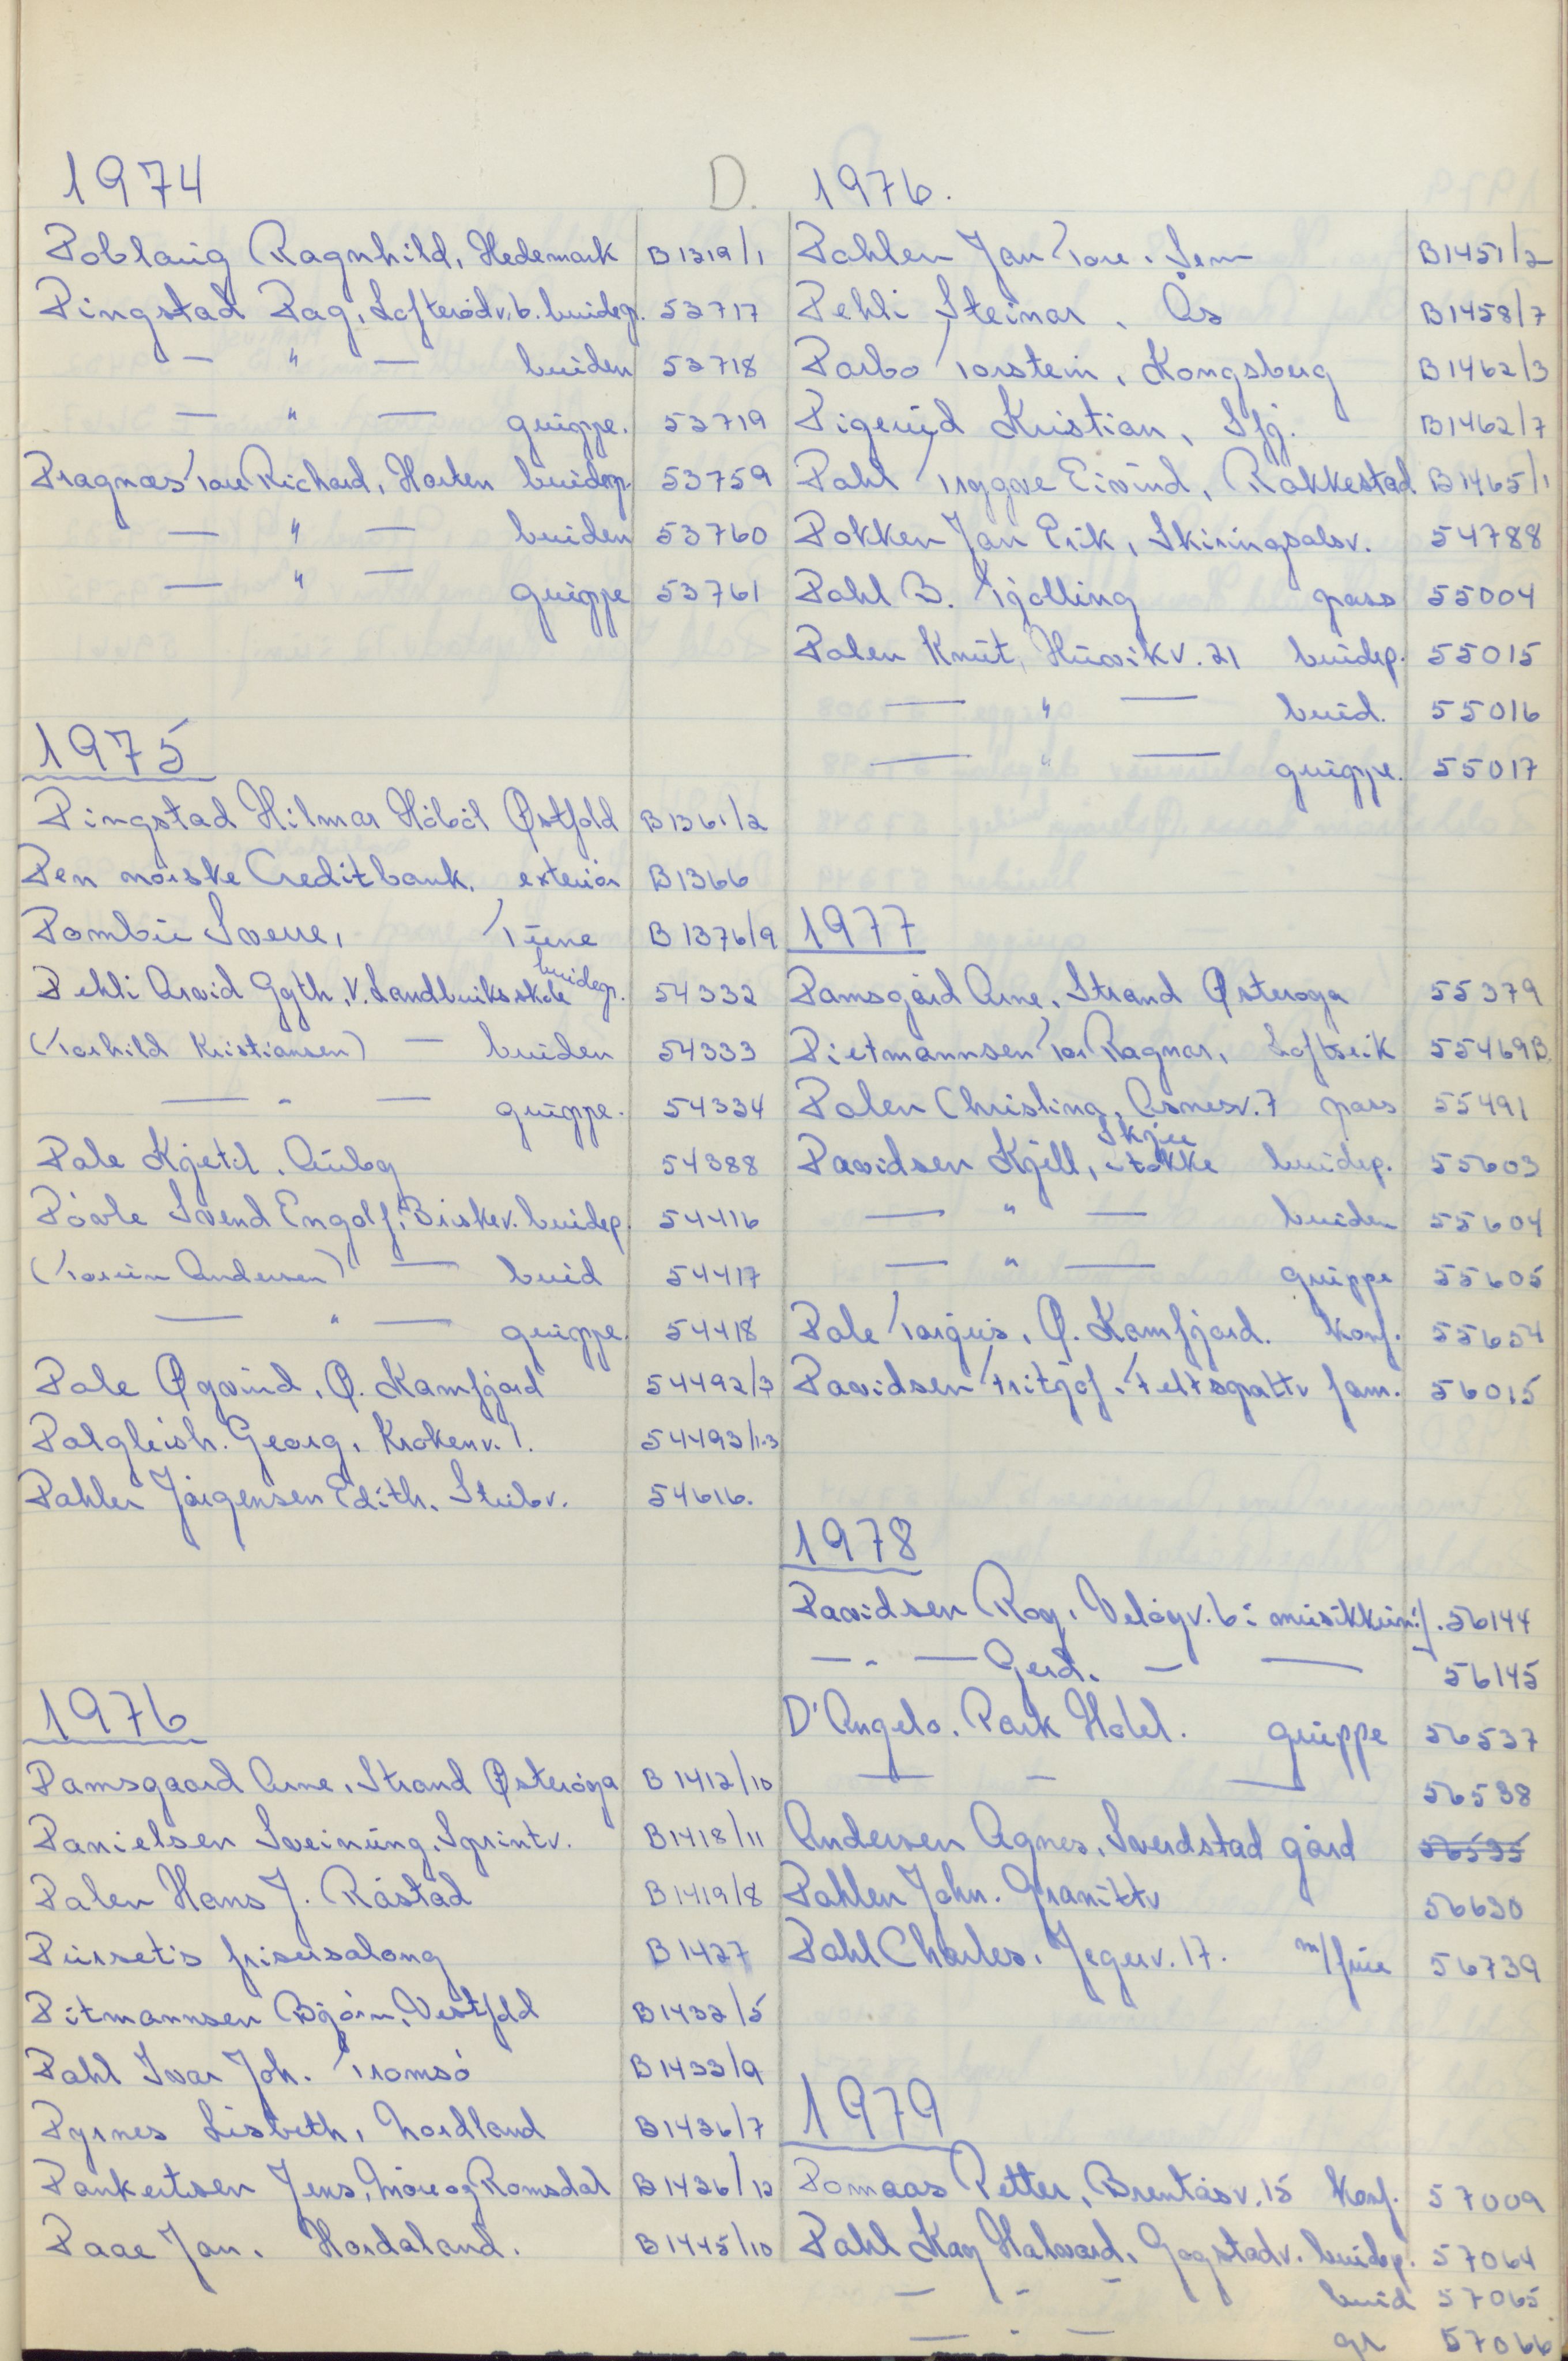 D.
1974
Doblaug Ragnhild, Hedemark B1319/1
Dingstad Dag, Lofterødv. 6. brudep. 53717
— " — bruden 53718
— " — gruppe. 53719
Dragnæs Tore Richard, Horten brudep. 53759
— " — bruden 53760
— " — gruppe 53761
1975
Dingstad Hilmar Hobøl Østfold B1361/2
Den norske Creditbank, exteriør B1366
Dombu Sverre, Furne B1376/9
Dehli Arvid Ggth, V. Landbruksskole brudep. 54332
(Torhild Kristiansen) — bruden 54333
— " — gruppe. 54334
Dale Kjetil. Auby 54388
Døvle Svend Engolf, Biskev. brudep. 54416
(Torunn Andersen) — brud 54417
— " — gruppe. 54418
Dale Øyvind, Ø. Kamfjord 54492/3
Dalgleish. Georg, Krokenv. 1. 54493/1-3
Dahler Jørgensen Edith. Stubv. 54616.
1976
Damsgaard Arne, Strand Østerøya B1412/10
Danielsen Sveinung, Sprintv. B1418/11
Dalen Hans J. Råstad B1419/8
Durset's frisersalong B1427
Ditmannsen Bjørn, Vestfold B1432/5
Dahl Ivar Joh. Tromsø B1433/9
Dyrnes Lisbeth, Nordland B1436/7
Dankertsen Jens, Møre og Romsdal B1436/12
Daae Jan. Hordaland. B1445/10
1976.
Dahlen Jan Tore. Sem B1451/2
Dehli Steinar, Ås B1458/7
Darbo Torstein, Kongsberg B1462/3
Digerud Kristian, Sfj. B1462/7
Dahl Tryggve Eivind, Rakkestad B1465/1
Dokken Jan Erik, Skiringsalsv. 54788
Dahl B. Tjølling pass 55004
Dalen Knut, Huvikv. 21 brudep. 55015
— " — brud. 55016
— " — gruppe. 55017
1977
Damsgård Arne, Strand Østerøya 55379
Dietmannsen Tor Ragnar, Loftseik 55469B
Dalen Christina, Åsnesv. 7 pass 55491
Davidsen Kjell, Skjee Stokke brudep. 55603
— " — bruden 55604
— " — gruppe 55605
Dale Torgus, Ø. Kamfjord. konf. 55654
Davidsen Fritjof, Feltspattv fam. 56015
1978
Davidsen Roy, Veløyv. 6: musikkuni:/. 56144
— " — Gerd. — — 56145
D'Angelo. Park Hotel. gruppe 56537
— — — 56538
Andersen Agnes, Sverdstad gård 56535
Dahlen John. Granittv 56630
Dahl Charles, Jegerv. 17. m/frue 56739
1979
Domaas Petter, Brentåsv. 15 konf. 57009
Dahl Kay Halvard, Gogstadv. brudep. 57064
— " — brud 57065
— " — gr 57066